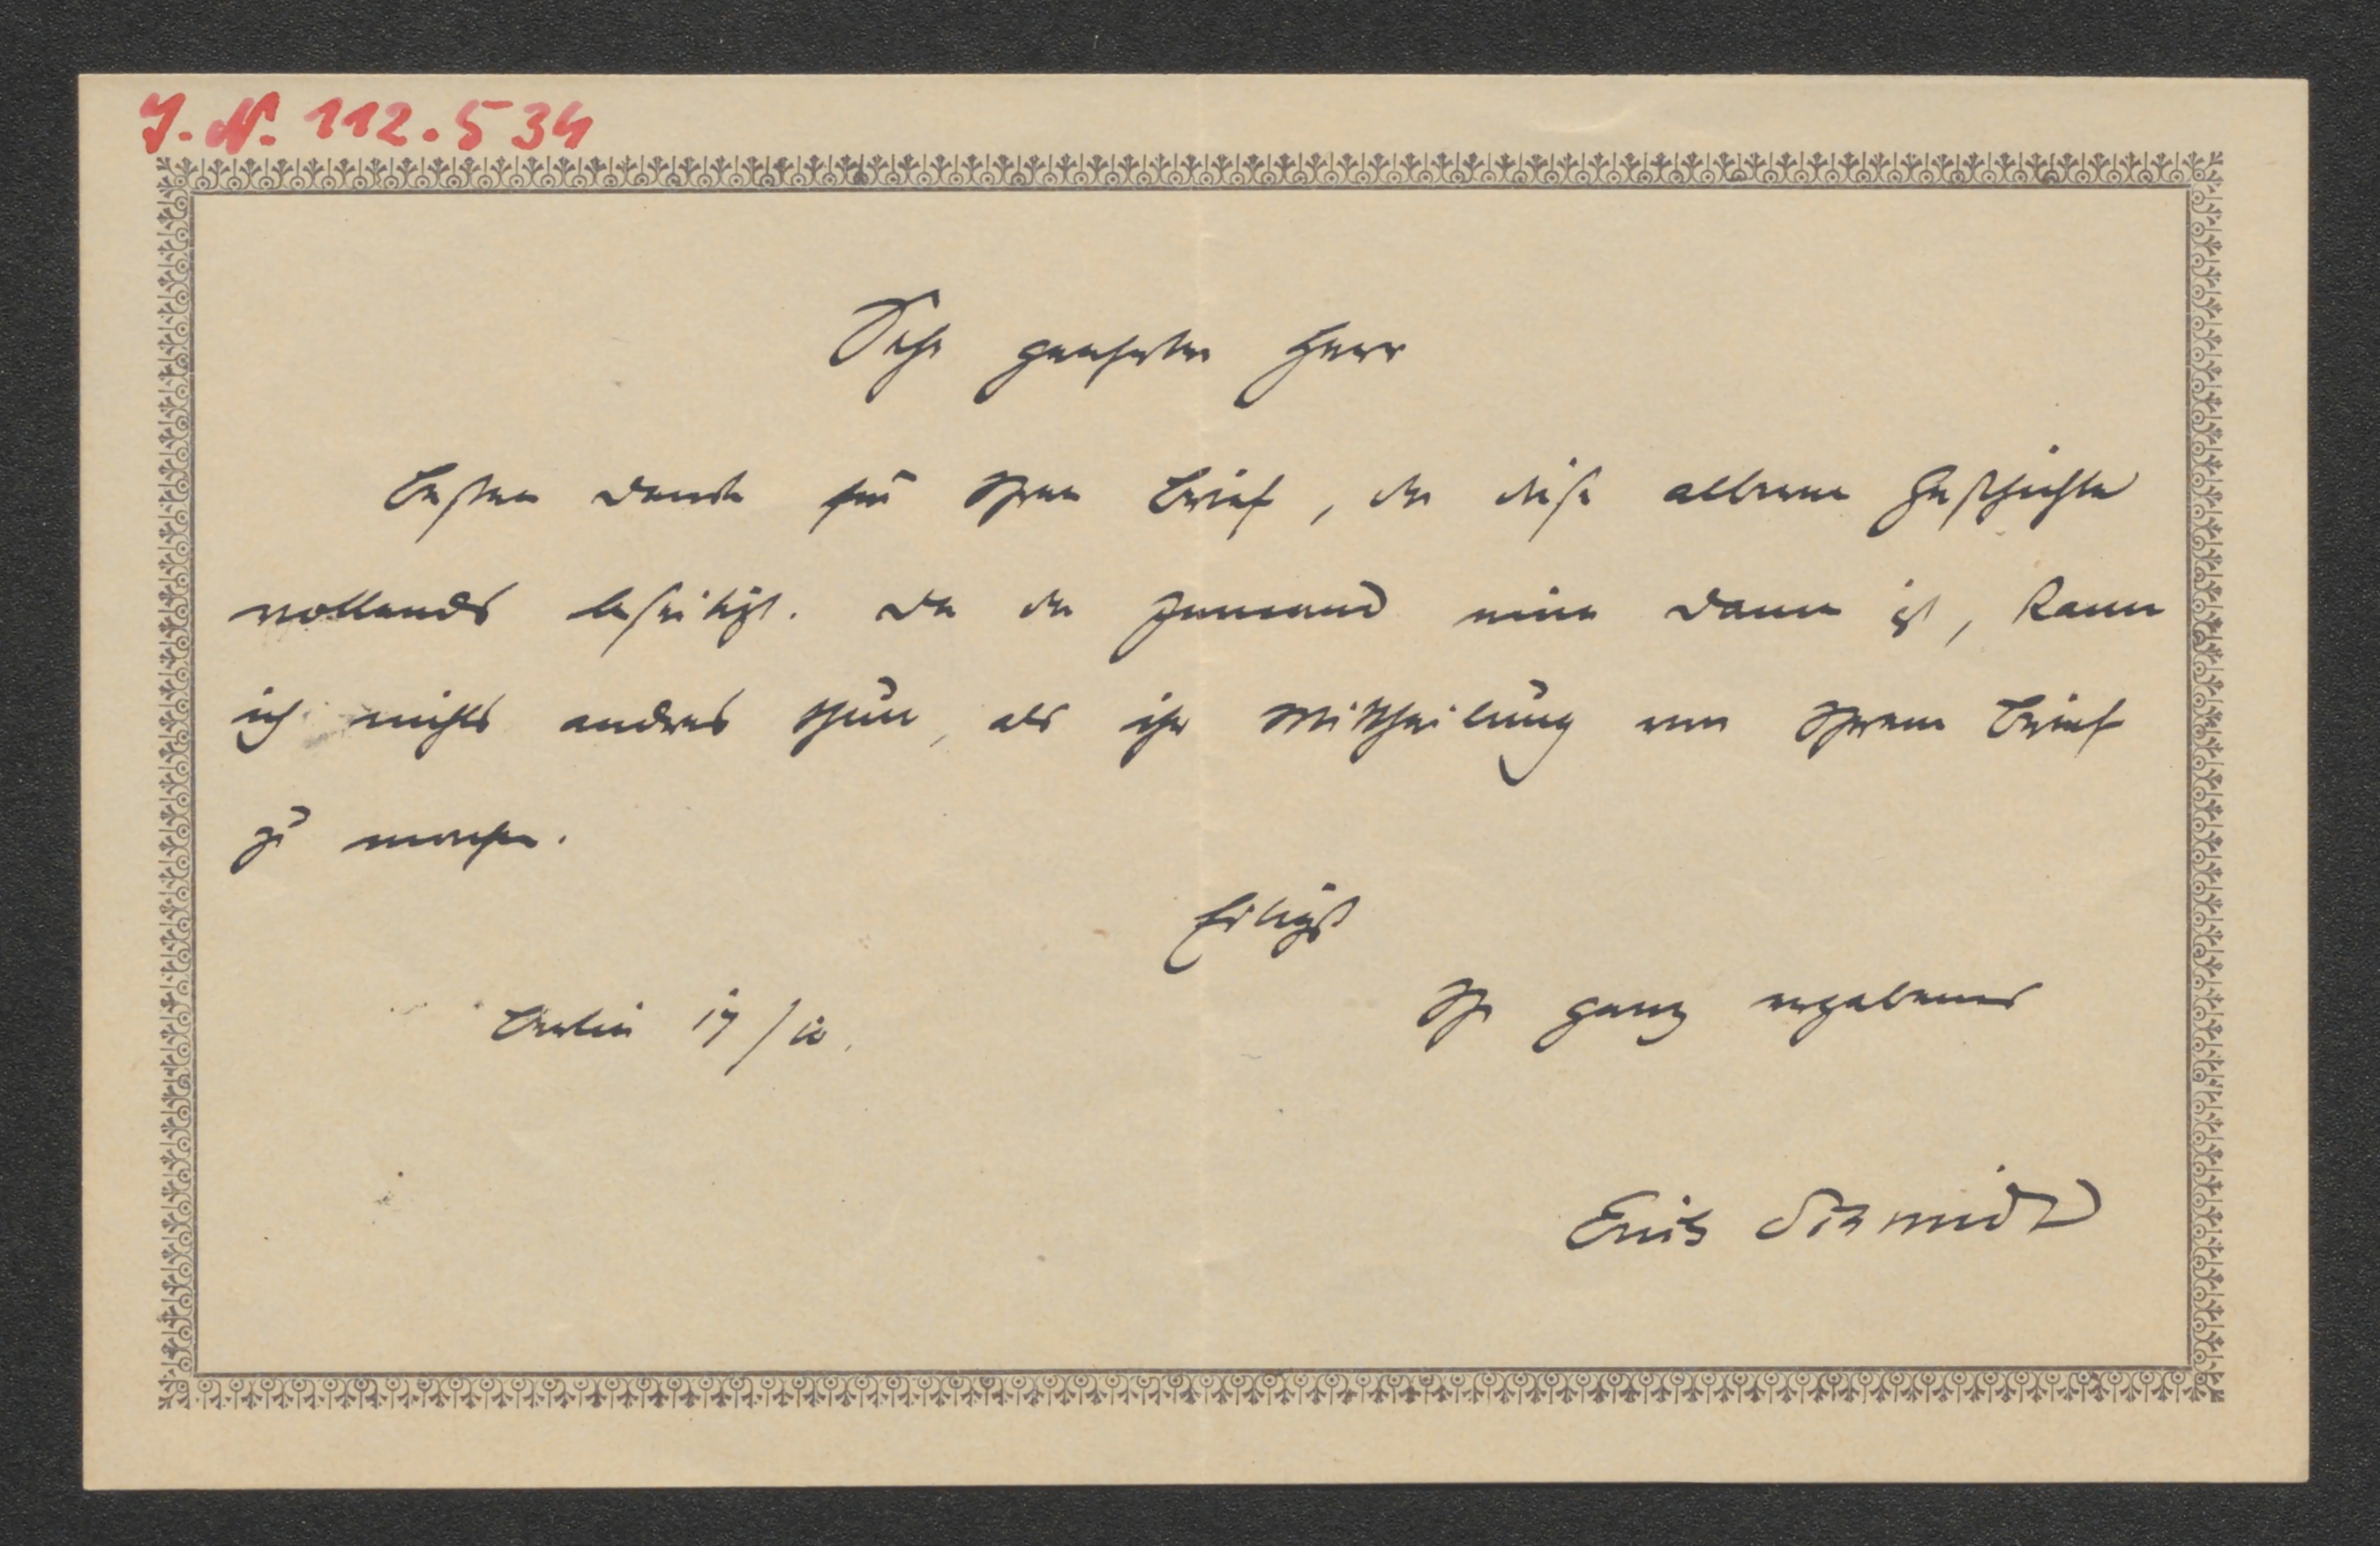 J. N. 112.534
Sehr geehrter Herr
Besten Dank für Ihren Brief, der diese alberne Geschichte
vollends beseitigt. Da der Jemand eine Dame ist, kann
ich nichts andres thun, als ihr Mittheilung von Ihrem Brief
zu machen.
Eiligst
Ihr ganz ergebener
Berlin 17/10.
Erich Schmidt